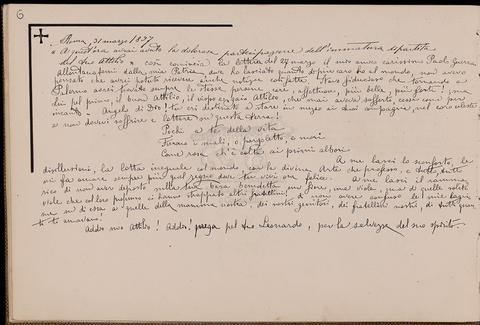 6
Roma, 31 marzo 1897
" A quest'ora avrai avuto la dolorosa partecipazione dell'immatura dipartita
del tuo Attilio " così comincia la lettera del 27 marzo il mio amico carissimo Paolo Guerra
Allontanatomi dalla mia Patria, dove ho lasciato quanto di più caro ho al mondo, non avevo
pensato che avrei potuto ricevere anche notizie così fatte. Stavo fiducioso che tornando a
Palermo avrei trovate sempre le stesse persone care, affettuose, più belle, più forti! ; ma
chi pel primo, il buon Attilio, il vispo e gaio Attilio, che mai aveva sofferto, cessò come per
incanto! Angelo di Dio! tu eri destinato a stare in mezzo ai tuoi compagni, nel coro celeste
e non dovevi soffrire e lottare su questa terra!
Pochi a te della vita
Furono i mali, o pargoletto, e mori
Come rosa ch'è colta ai primi albori
A me lasci lo sconforto, le
disillusioni, la lotta ineguale col mondo, con la divina Arte che professo, e tutto, tutto
mi fai amare sempre più quel regno dove tu vivi ora felice. A me lasci il rammarico
di non aver deposto sulla tua bara benedetta un fiore, una viola, una di quelle solite
viole che col loro profumo ci hanno strappato altri fratellini! di non avere confuso le mie lagrime
su d'essa a quelle della mamma nostra, dei nostri genitori, dei fratellini nostri, di tutti quanti
ti amavano!
Addio mio Attilio! Addio! prega pel tuo Leonardo, per la salvezza del suo spirito.